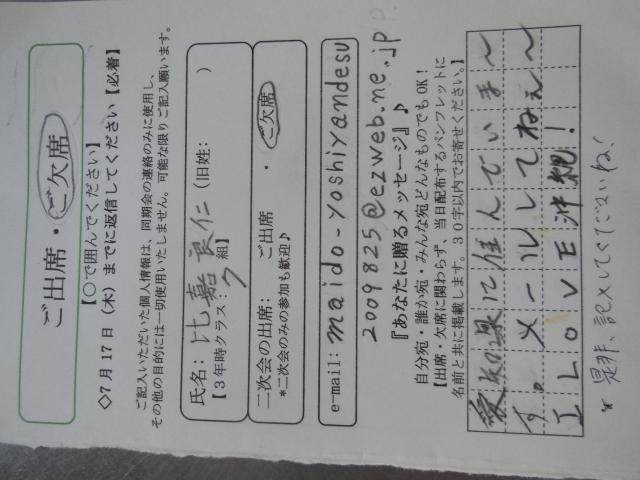 ご出席・ご欠席
【○で囲んでください】
◇7月17日（木）までに返信してください【必着】
ご記入いただいた個人情報は、同期会の連絡のみに使用し、
その他の目的には一切使用いたしません。可能な限りご記入願います。
氏名：比嘉良仁（旧姓：　　）
【3年時クラス：7組】
二次会の出席：　ご出席　・　ご欠席
*二次会のみの参加も歓迎♪
e-mail: maido-yoshiyandesu
2009825@ezweb.ne.jp
『あなたに贈るメッセージ』♪
自分宛・誰か宛・みんな宛どんなものでもOK！
【出席・欠席に関わらず、当日配布するパンフレットに
名前と共に掲載します。30字以内でお寄せください。】
愛知県に住んでいま〜
す。メールしてねぇ〜
I LOVE沖縄！
*是非、記入してくださいね！